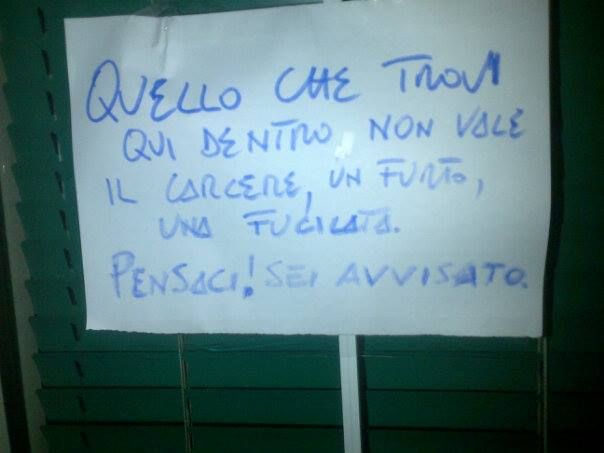 QUELLO CHE TROVI
QUI DENTRO, NON VALE
IL CARCERE, UN FURTO,
UNA FUCILATA.
PENSACI! SEI AVVISATO.